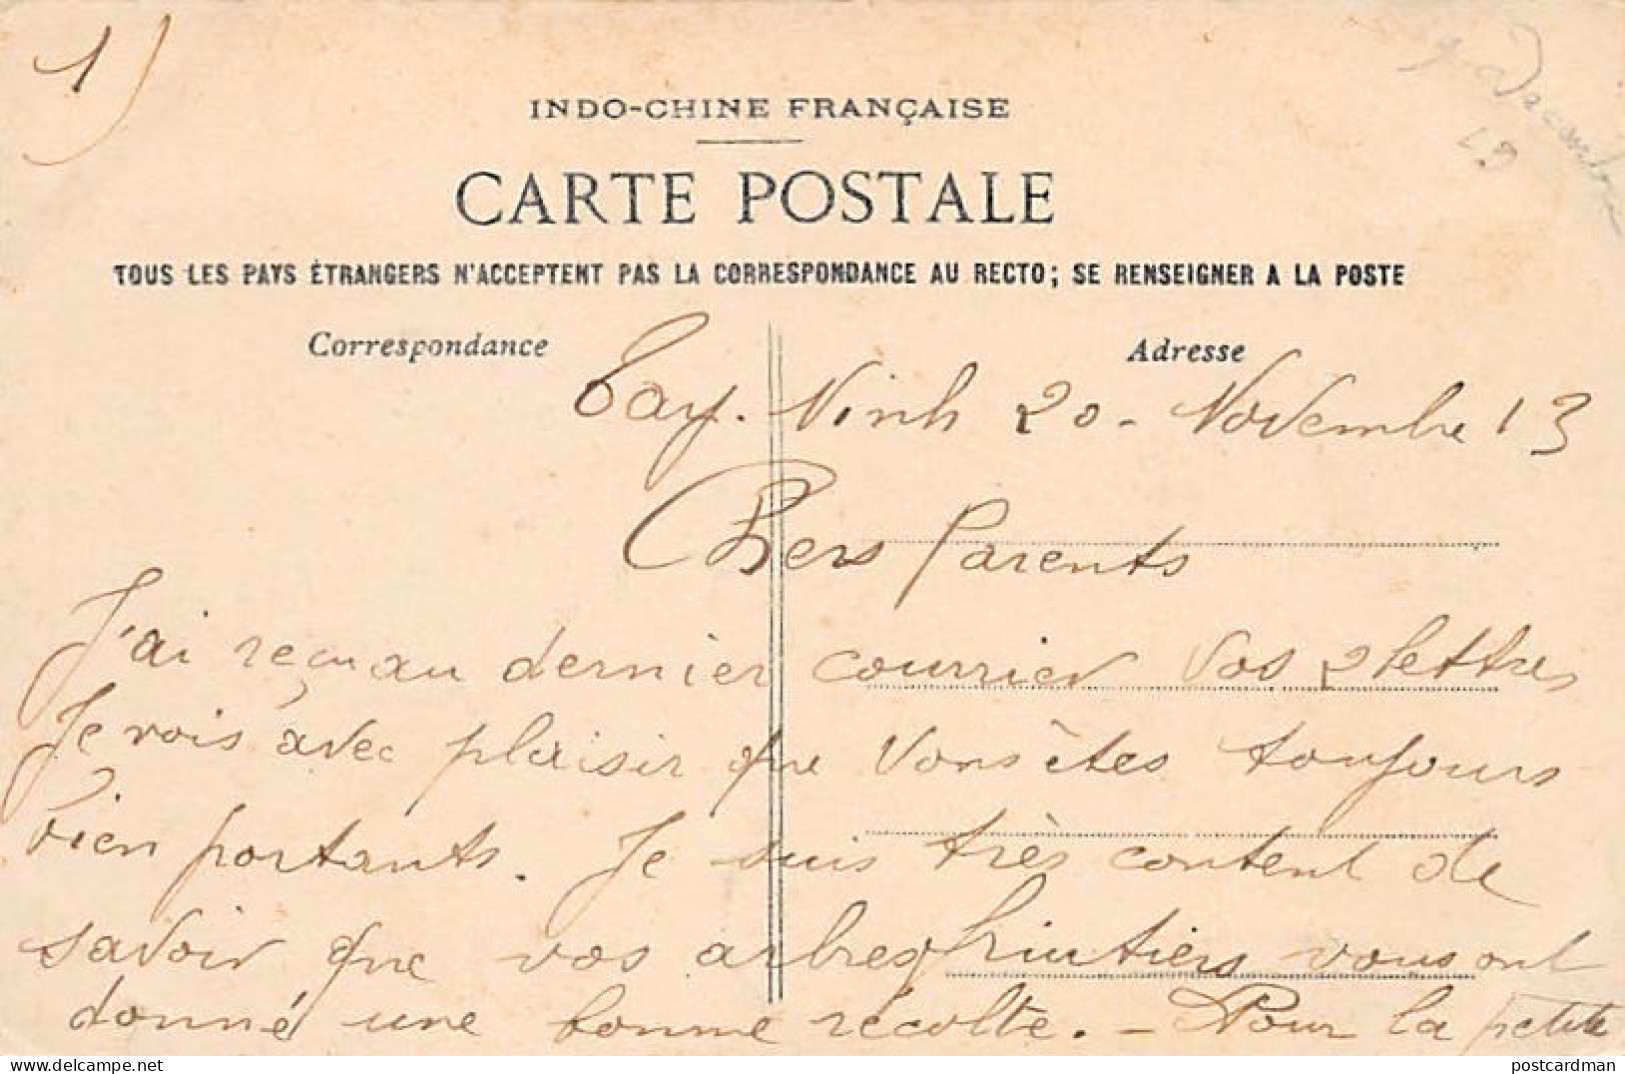 1)
INDO-CHINE FRANÇAISE
CARTE POSTALE
TOUS LES PAYS ÉTRANGERS N'ACCEPTENT PAS LA CORRESPONDANCE AU RECTO; SE RENSEIGNER A LA POSTE
Correspondance
Adresse
Tay-Ninh 20-Novembre 13
Chers Parents
J'ai reçu au dernier courrier vos 2 lettres
Je vois avec plaisir que vous êtes toujours
bien portants. Je suis très content de
savoir que vos arbres fruitiers vous ont
donné une bonne récolte. - Pour la petite
postcardman
www.delcampe.net